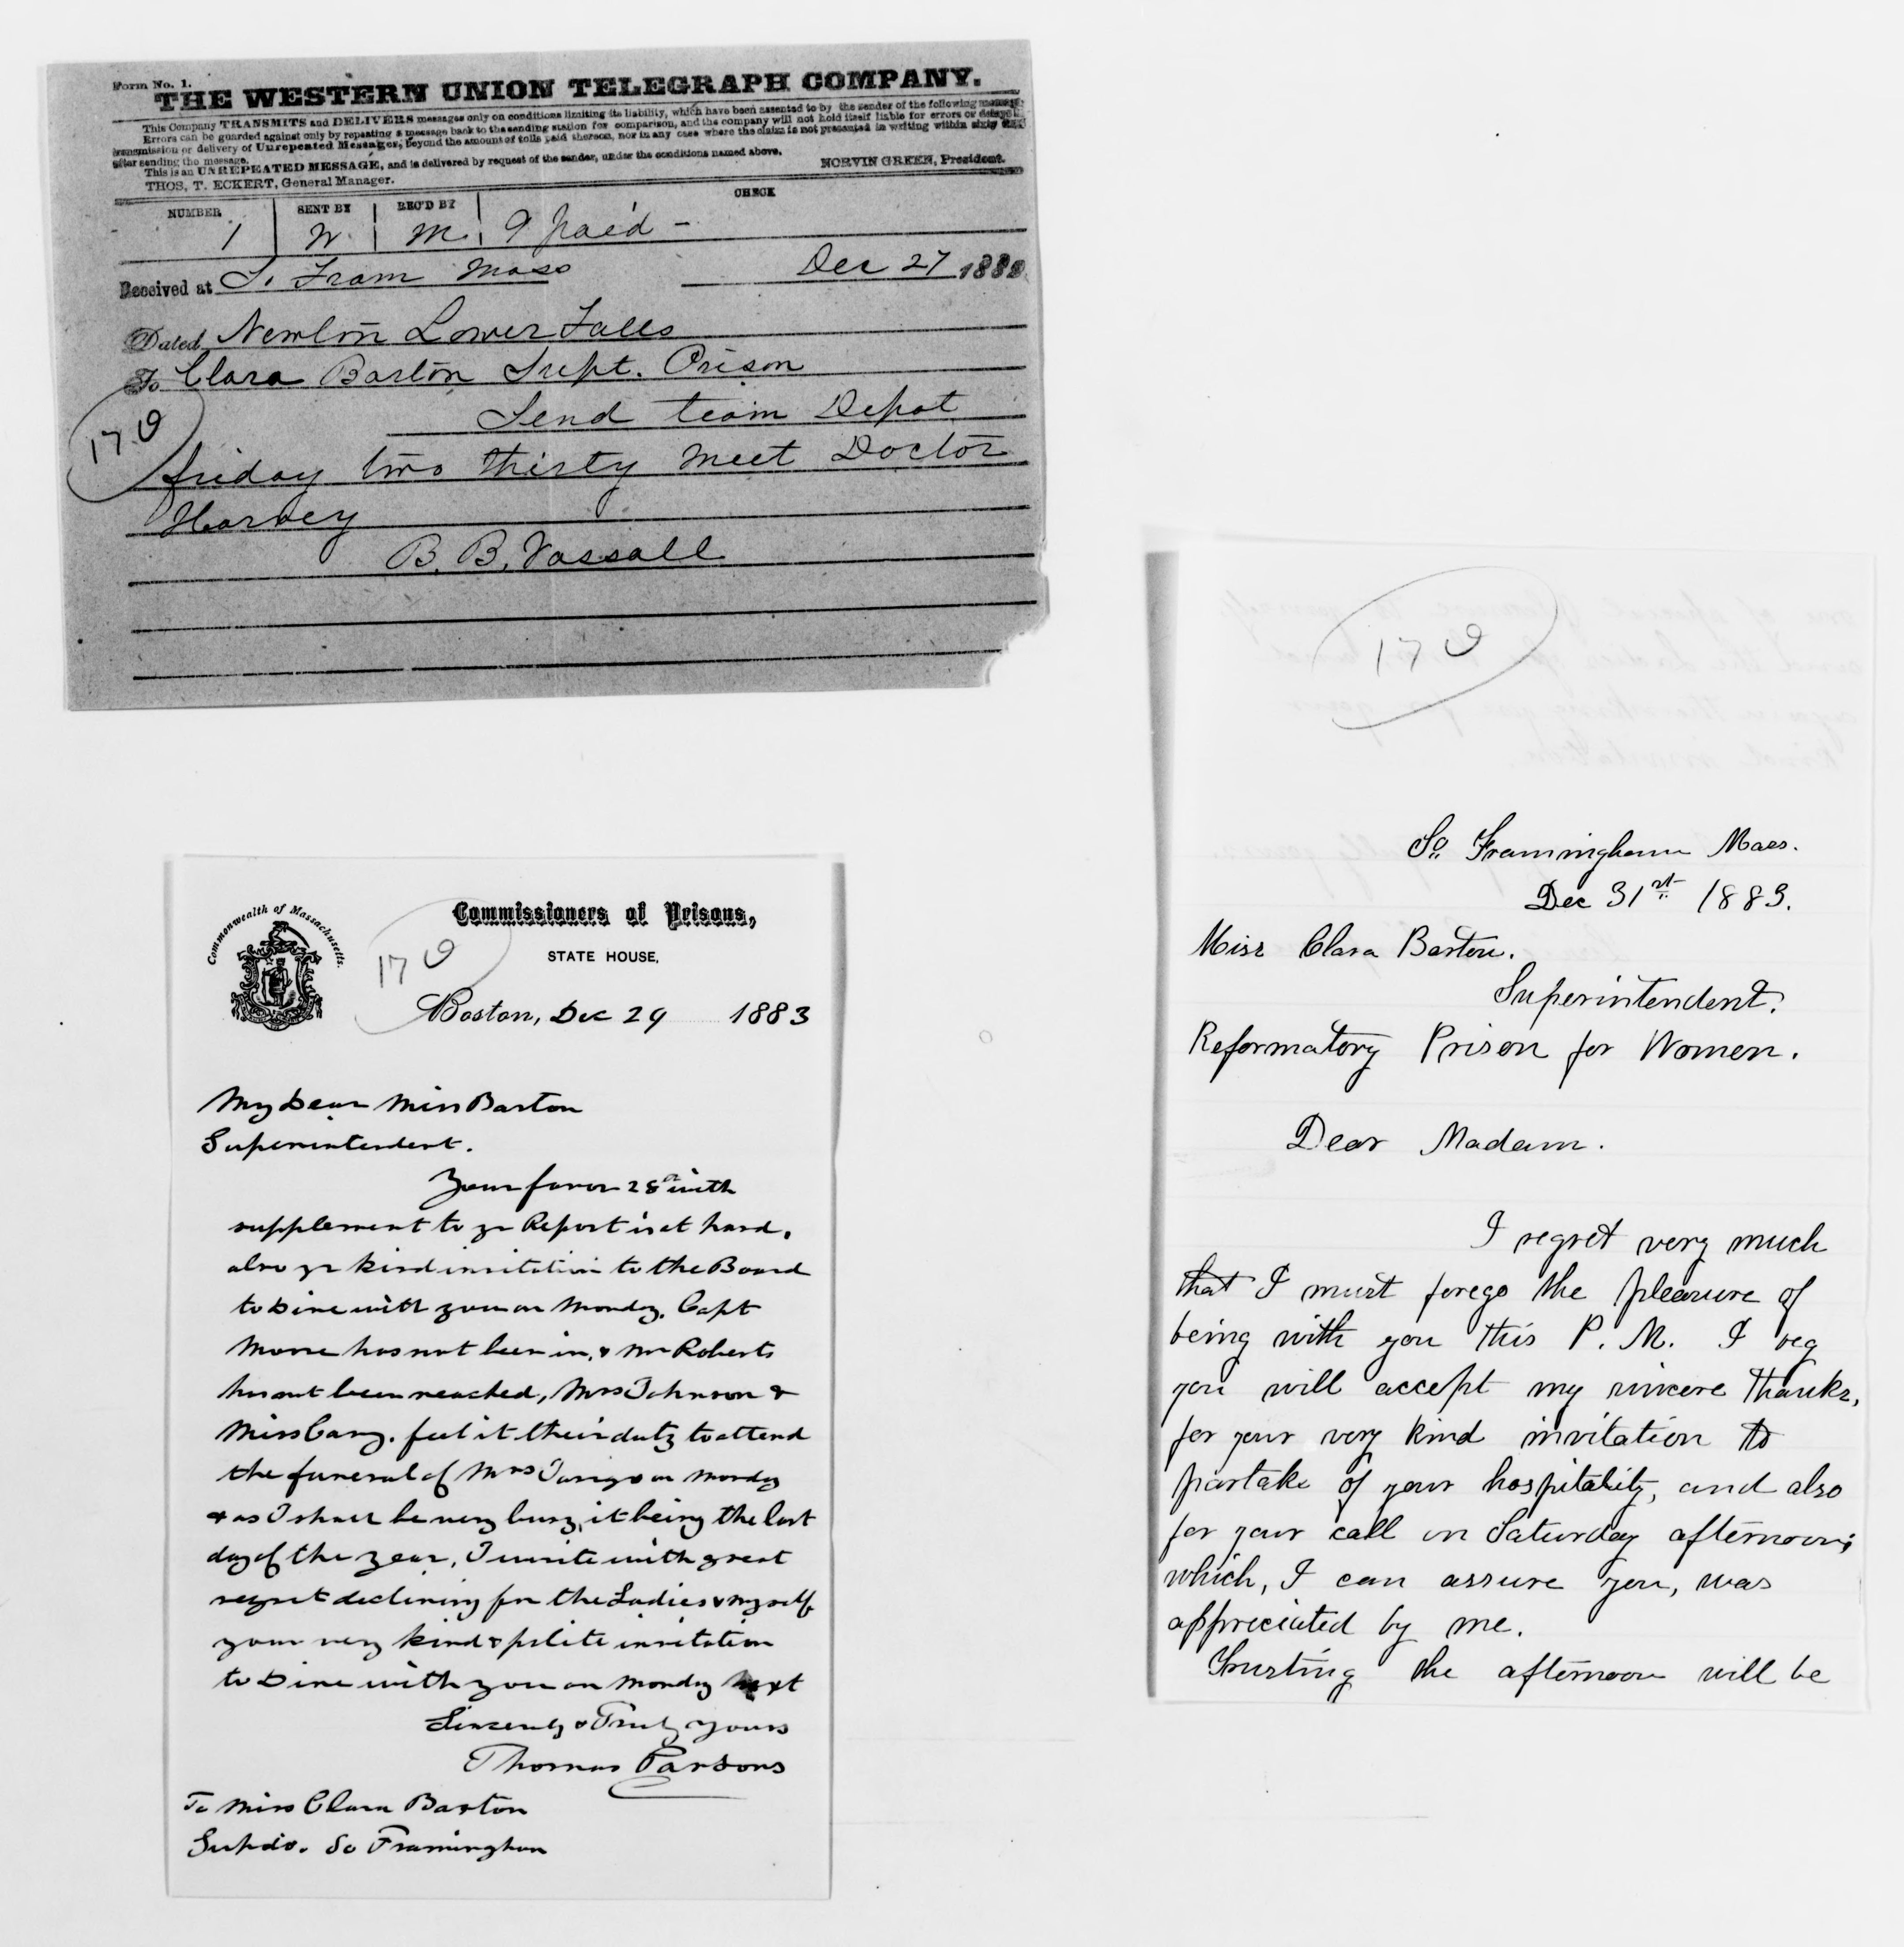 Form No. 1.
THE WESTERN UNION TELEGRAPH COMPANY.
This Company TRANSMITS and DELIVERS messages only on conditions limiting its liability, which have been assented to by the sender of the following message.
Errors can be guarded against only by repeating a message back to the sending station for comparison, and the company will not hold itself liable for errors or delays in
transmission or delivery of Unrepeated Messages, beyond the amount of tolls paid thereon, nor in any case where the claim is not presented in writing within sixty days
after sending the message.
This is an UNREPEATED MESSAGE, and is delivered by request of the sender, under the conditions named above.
THOS. T. ECKERT, General Manager. NORVIN GREEN, President.
NUMBER SENT BY REC'D BY CHECK
1 W. M. 9 paid -
Received at So. Fram Mass Dec 27 188
Dated Newton Lower Falls
To Clara Barton Supt. Prison
Send team Depot
170
friday two thirty meet Doctor
Harvey
B. B. Vassall
Commonwealth of Massachusetts.
Commissioners of Prisons,
STATE HOUSE,
170
Boston, Dec 29 1883
My Dear Miss Barton
Superintendent.
Your favor 28th with
supplement to yr Report is at hand,
also yr kind invitation to the Board
to Dine with you on Monday. Capt
Morse has not been in, & Mr Roberts
has not been reached, Mrs Johnson &
Miss Cary. feel it their duty to attend
the funeral of Mrs on Monday
& as I shall be very busy, it being the last
day of the year, I write with great
regret declining for the Ladies & myself
your very kind & polite invitation
to Dine with you on Monday next
Sincerely & Truly yours
Thomas Parsons
To Miss Clara Barton
Supdt. So Framingham
170
So. Framingham Mass.
Dec 31st 1883.
Miss Clara Barton.
Superintendent.
Reformatory Prison for Women.
Dear Madam.
I regret very much
that I must forego the pleasure of
being with you this P. M. I beg
you will accept my sincere thanks,
for your very kind invitation to
partake of your hospitality, and also
for your call on Saturday afternoon;
which, I can assure you, was
appreciated by me.
Trusting the afternoon will be